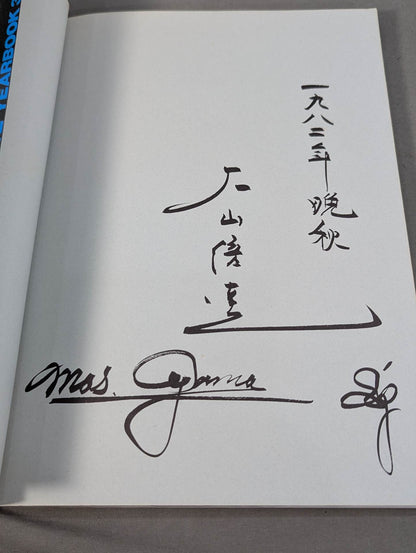 一九八二年晩秋
大山倍達
Mas. Oyama
YEARBOOK 3